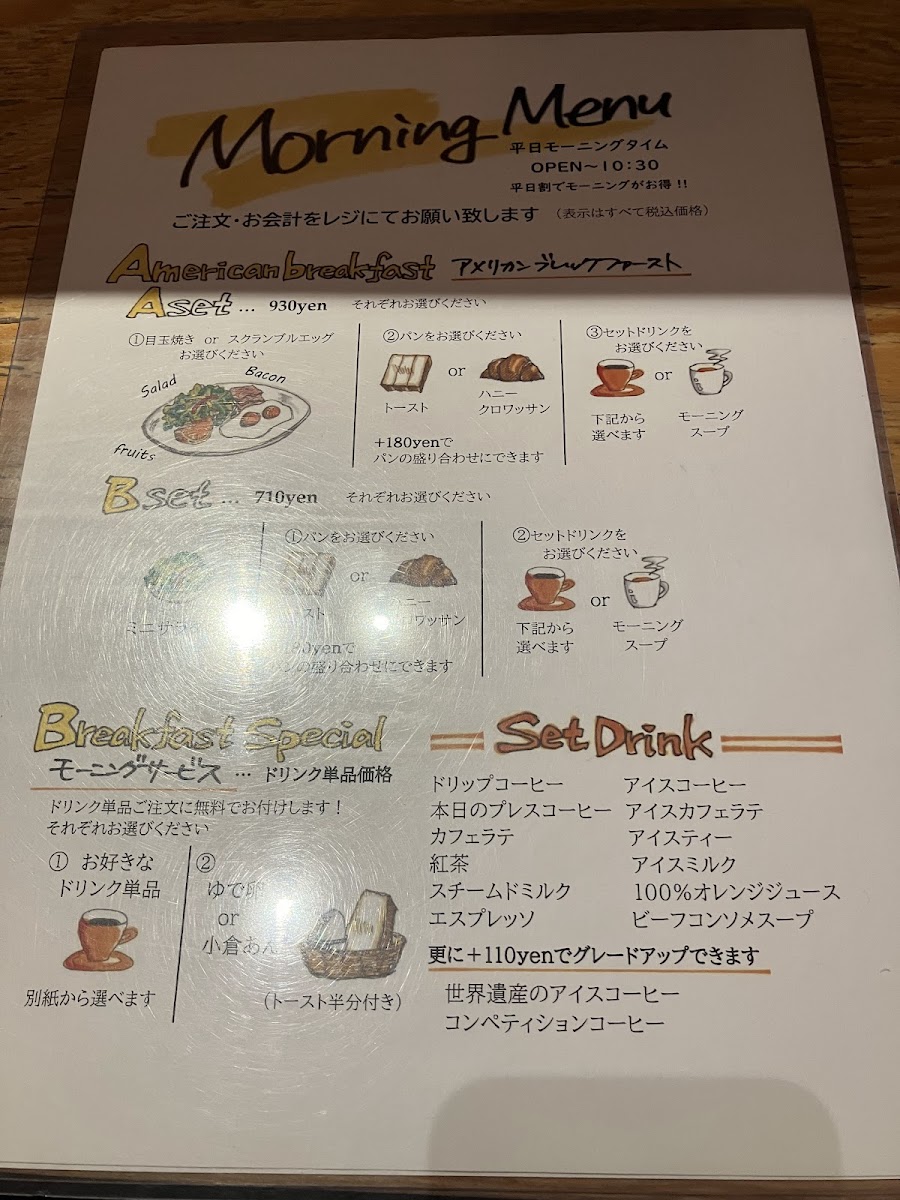 Morning Menu
平日モーニングタイム
OPEN~10:30
平日割でモーニングがお得!!
ご注文・お会計をレジにてお願い致します (表示はすべて税込価格)
American breakfast アメリカンブレックファースト
A set … 930yen それぞれお選びください
①目玉焼き or スクランブルエッグ
お選びください
Salad
Bacon
fruits
②パンをお選びください
or
トースト
ハニー
クロワッサン
+180yenで
パンの盛り合わせにできます
③セットドリンクを
お選びください
or
下記から
選べます
モーニング
スープ
B set … 710yen それぞれお選びください
ミニサラ
①パンをお選びください
or
スト
ニー
ロワッサン
80yenで
パンの盛り合わせにできます
②セットドリンクを
お選びください
or
下記から
選べます
モーニング
スープ
Breakfast Special
モーニングサービス … ドリンク単品価格
ドリンク単品ご注文に無料でお付けします!
それぞれお選びください
① お好きな
ドリンク単品
別紙から選べます
②
ゆで卵
or
小倉あん
(トースト半分付き)
Set Drink
ドリップコーヒー
本日のプレスコーヒー
カフェラテ
紅茶
スチームドミルク
エスプレッソ
アイスコーヒー
アイスカフェラテ
アイスティー
アイスミルク
100%オレンジジュース
ビーフコンソメスープ
更に+110yenでグレードアップできます
世界遺産のアイスコーヒー
コンペティションコーヒー